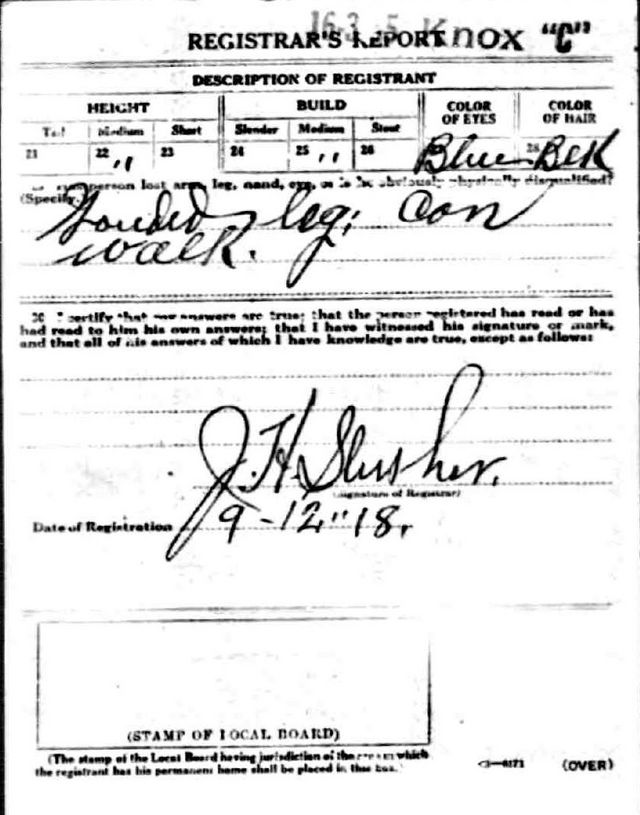 16 3 5 Knox "C"
REGISTRAR'S REPORT
DESCRIPTION OF REGISTRANT
HEIGHT BUILD COLOR OF EYES COLOR OF HAIR
Tall Medium Short Slender Medium Stout
21 22 " 23 24 25 " 26 Blue 28 Blk
person lost arm, leg, hand, eye, or is he obviously physically disqualified?
(Specify.)
leg; can
walk.
30 I certify that my answers are true; that the person registered has read or has
had read to him his own answers; that I have witnessed his signature or mark,
and that all of his answers of which I have knowledge are true, except as follows:
J. H. Slusher.
(Signature of Registrar)
Date of Registration 9-12"18.
(STAMP OF LOCAL BOARD)
(The stamp of the Local Board having jurisdiction of the area in which
the registrant has his permanent home shall be placed in this box.)
3—6171 (OVER)